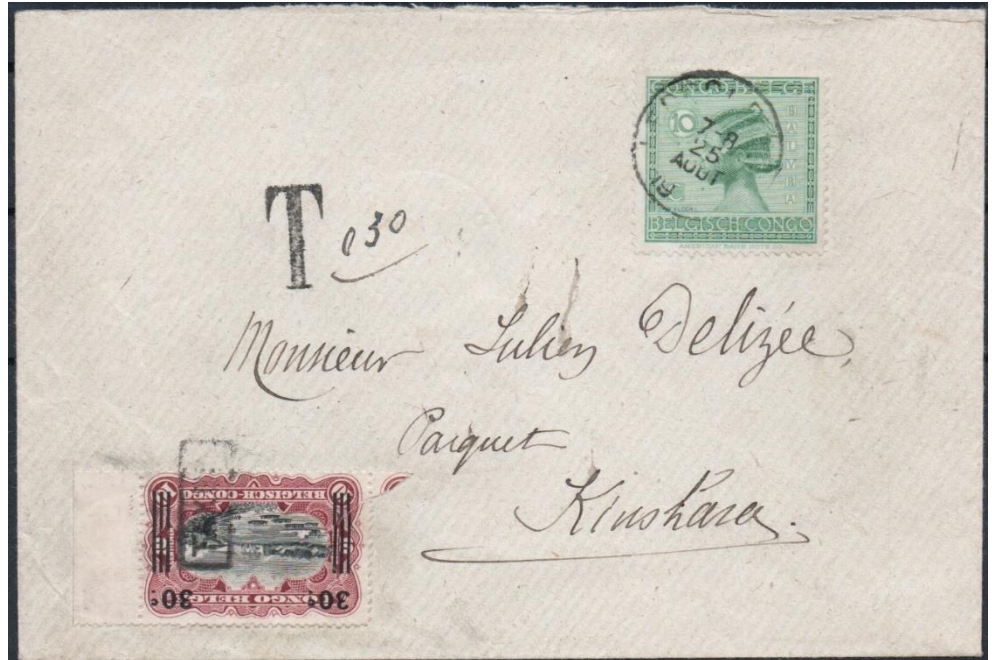 CONGO BELGE
10
C
BAUMBA
BELGISCH CONGO
7-8
25
AOUT
19
T 030
Monsieur Julien Delizée
Parquet
Kinshasa.
BELGISCH-CONGO
30c 30c
CONGO BELGE